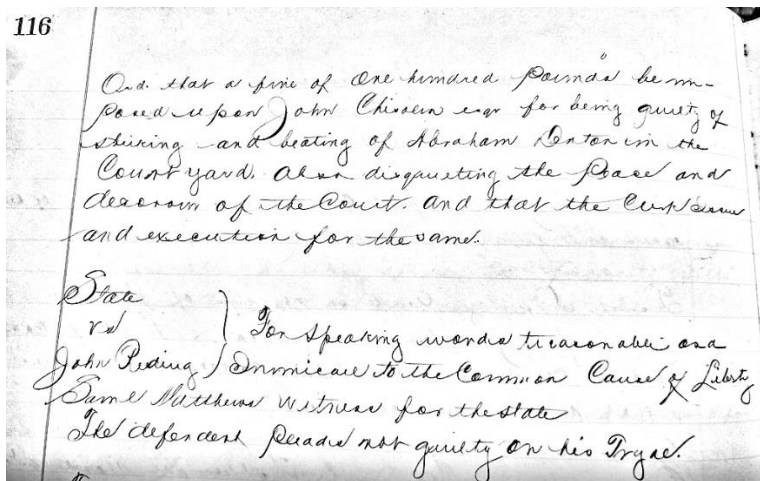 116
Ord. that a fine of One hundred Pounds be im-
posed upon John Chisolm esqr for being guilty of
striking and beating of Abraham Denton in the
Court yard. Also disquieting the Peace and
decorum of the Court. And that the Clerk issue
and execution for the same.
State
vs
For speaking words treasonable and
John Reding Inimical to the Common Cause of Liberty
Saml Matthews witness for the state
The defendent pleads not guilty on his Tryal.